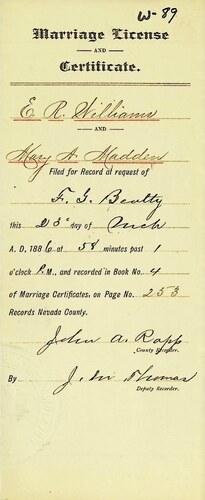 W-89
Marriage License
AND
Certificate.
E. R. Williams
AND
Mary A. Madden
Filed for Record at request of
F. G. Beatty
this 23d day of Mch
A. D. 1886 at 58 minutes past 1
o'clock P. M., and recorded in Book No. 4
of Marriage Certificates, on Page No. 253
Records Nevada County.
John A. Rapp
County Recorder.
By J. M. Thomas
Deputy Recorder.